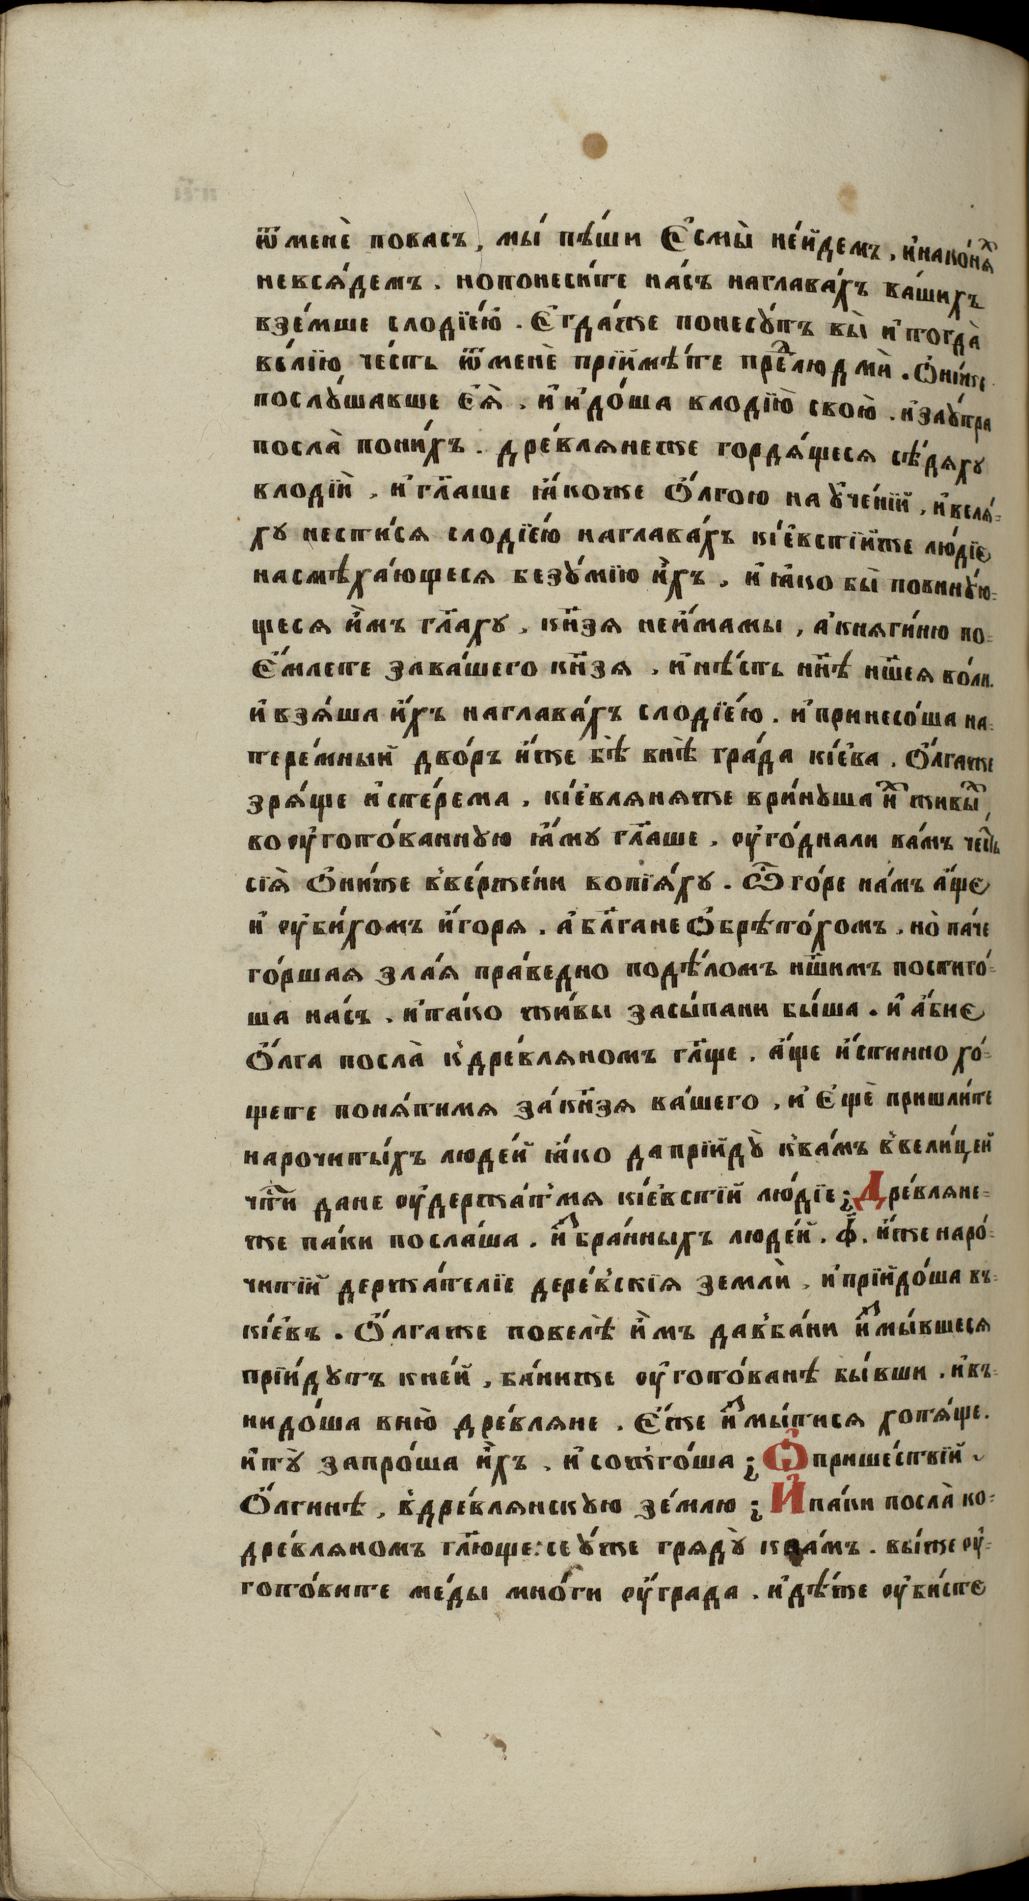 ѿменѐ повасъ, мы́ пѣ́ши є҆смы̀ не́йдемъ, и҆нако́нѧⷯ
невсѧ́демъ. нопонеси́те на́съ наглава́хъ ва́шихъ
взе́мше слодїе́ю. є҆гда́же понесꙋ́тъ вы̀ и҆тогда̀
ве́лїю че́сть ѿменѐ прїи́мѣ́те преⷣлюдмѝ. ѻ҆ни́же
послꙋ́шавше є҆ѧ̀, и҆ и҆до́ша влодїю̀ свою̀. и҆заꙋ́тра
посла̀ пони́хъ. дре́влѧнеже гордѧ́щесѧ сѣ́дѧхꙋ
влодїѝ, и҆ гл҃аше ꙗ҆́коже ѻ҆́лгою наꙋче́нїи, и҆велѧ́-
хꙋ нести́сѧ слодїе́ю наглава́хъ кі́евстїи́же лю́дїе
насмѣха́ющесѧ безꙋ́мїю и҆́хъ, и҆ ꙗ҆́ко бы̀ повинꙋ́ю-
щесѧ и҆̀мъ гл҃ахꙋ, кн҃зѧ неи҆́мамы, а҆кнѧги́ню по-
є҆́млете зава́шего кн҃зѧ, и҆нѣ́сть нн҃ѣ нш҃еѧ во́ли.
и҆ взѧ́ша и҆́хъ наглава́хъ слодїе́ю. и҆принесо́ша на-
тере́мный дво́ръ и҆́же бѣ̀ внѣ̀ гра́да кі́ева. ѻ҆́лгаже
зрѧ́ще и҆сте́рема, кі́евлѧнѧжеври́нꙋша и҆ⷯ живыⷯ,
во оу҆гото́ванную ꙗ҆́мꙋ гл҃аше, оу҆го́днали ва́мъ чеⷭ҇ть
сїѧ̀ ѻ҆ни́же в̾ве́ржени вопїѧ́хꙋ. ѽ го́ре на́мъ а҆́ще
и҆ оу҆би́хомъ и҆́горѧ, а҆бл҃гане ѻ҆брѣто́хомъ, но̀ па́че
го́ршаѧ зла́ѧ пра́ведно подѣ́ломъ нш҃имъ постиго́-
ша на́съ, и҆та́ко жи́вы засы́пани бы́ша. и҆ а҆́бие
ѻ҆́лга посла̀ к̾дре́влѧномъ гл҃ще, а҆́ще и҆́стинно хо́-
щете понѧ́тимѧ за́кн҃зѧ ва́шего, и҆ є҆щѐ пришли́те
нарочиты́хъ люде́й ꙗ҆́ко да прїидꙋ̀ к̾ва́мъ в̾вели́цей
чт҃и дане оу҆держа́т̾мѧ кі́евстїи лю́дїе; Дре́влѧне-
же па́ки посла́ша, и҆ⷥбра́нныхъ люде́й. ф҃. и҆́же наро́-
читїи держа́телїе дере́вскїѧ землѝ, и҆прїидо́ша въ-
кі́евъ. ѻ҆́лгаже повелѣ̀ и҆̀мъ дав̾ба́ни и҆ⷥмы́вшесѧ
прїи́дꙋтъ кне́й, ба́ниже оу҆гото́ванѣ бы́вши, и҆въ-
нидо́ша вню̀ дре́влѧне. є҆́же и҆ⷥмы́тисѧ хотѧ́ще.
и҆тꙋ̀ запро́ша и҆́хъ, и҆сожго́ша; Ѡ҆прише́ствїи
ѻ҆́лгинѣ, в̾дре́влѧнскую зе́млю; И҆ па́ки посла̀ ко-
дре́влѧномъ гл҃юще: се ꙋ҆́же грѧдꙋ̀ к ва́мъ. вы́же оу҆-
гото́вите ме́ды мно́ги оу҆града, и҆дѣ́же оу҆би́сте